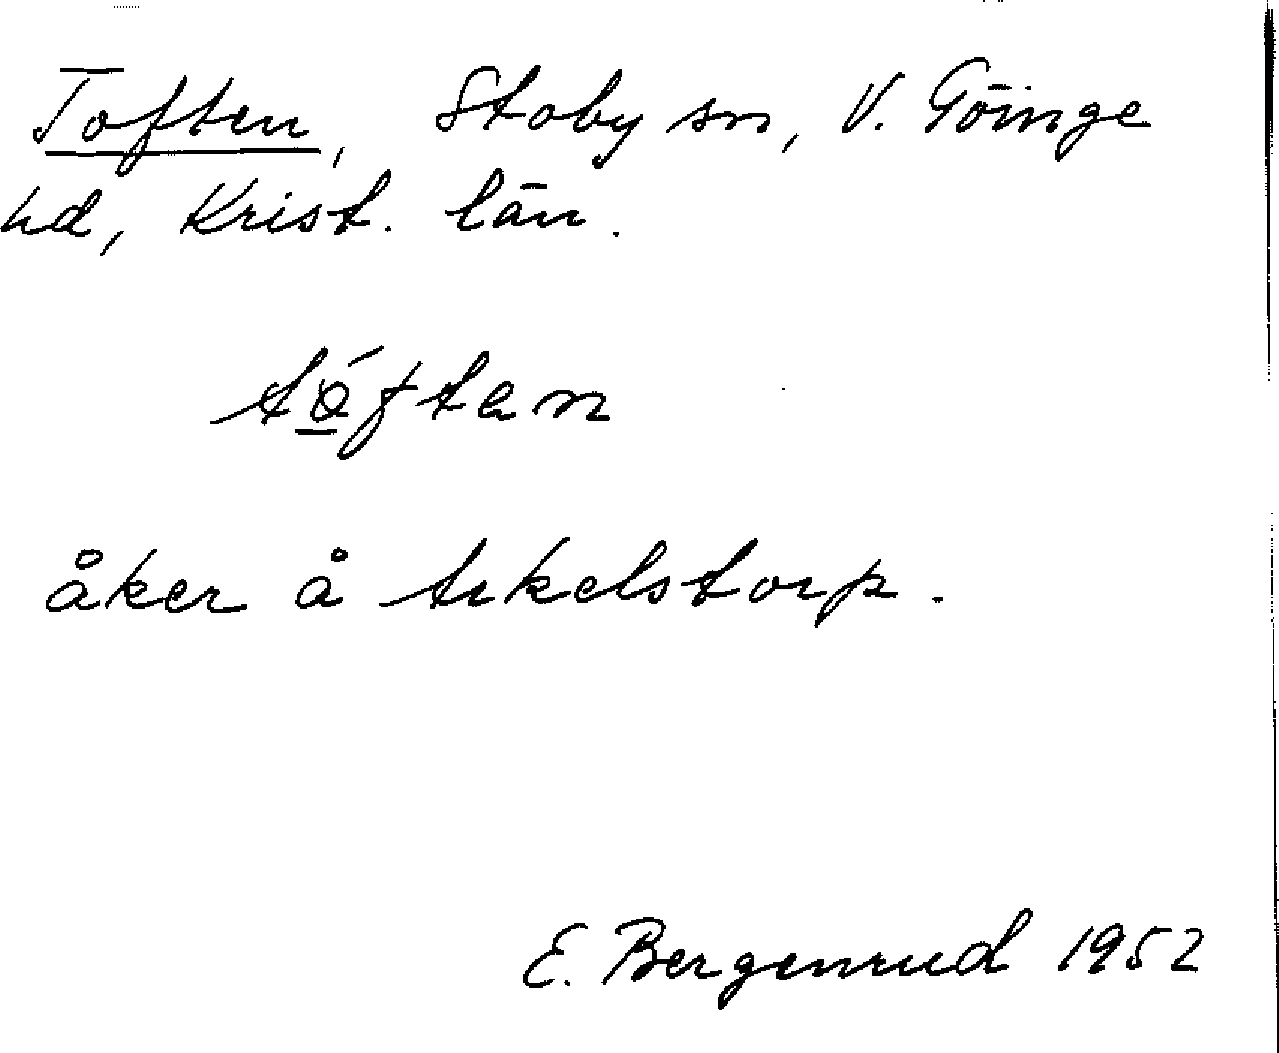 Toften, Stoby sn, V. Göinge
hd, Krist. län.
tǿ̱ften
åker å Arkelstorp.
E. Bergenrud 1952